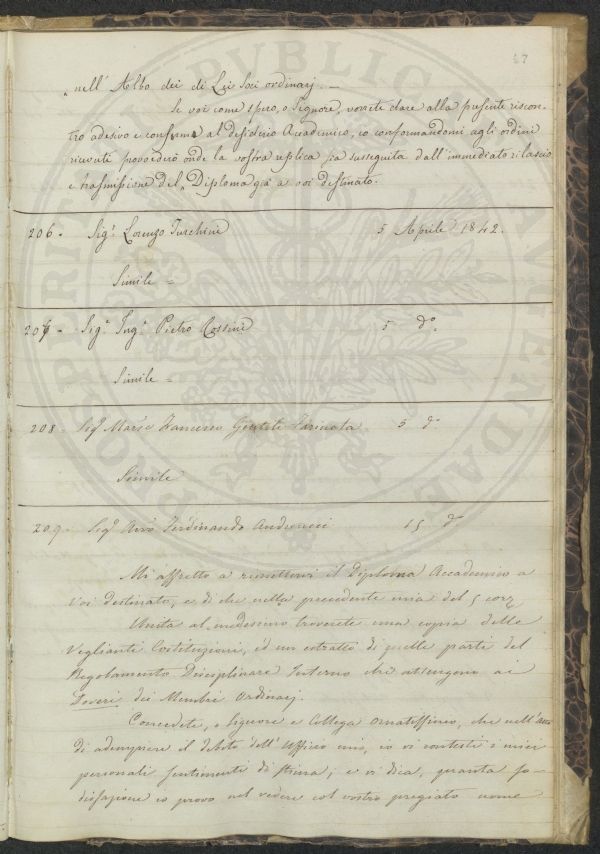 47
nell' Albo dei di Lei Soci ordinarj. —
Se voi come spero, o Signore, vorrete dare alla presente riscon-
tro adesivo e conforme al desiderio Accademico, io conformandomi agli ordini
ricevuti provvederò onde la vostra replica sia susseguita dall'immediato rilascio
e trasmissione del Diploma già a voi destinato.
206. Sig.r Lorenzo Turchini 5 Aprile 1842.
Simile =
207. Sig.r Ing.r Pietro Cossini 5 d.o
Simile =
208. Sig.r March.e Francesco Gentile Farinola 5 d.o
Simile
209. Sig.r Avv.o Ferdinando Andreucci 15 d.o
Mi affretto a rimettervi il Diploma Accademico a
Voi destinato, e di che nella precedente mia del 5 corr.e
Unita al medesimo troverete una copia delle
Veglianti Costituzioni, ed un estratto di quelle parti del
Regolamento Disciplinare Interno che attengono ai
Doveri dei Membri Ordinarj.
Concedete, o Signore e Collega Ornatissimo, che nell'atto
di adempiere il debito dell'Uffizio mio, io vi contesti i miei
personali sentimenti di stima, e vi dica, quanta so-
disfazione io provo nel vedere col vostro pregiato nome
PROSPERITATI PUBLICAE AUGENDAE